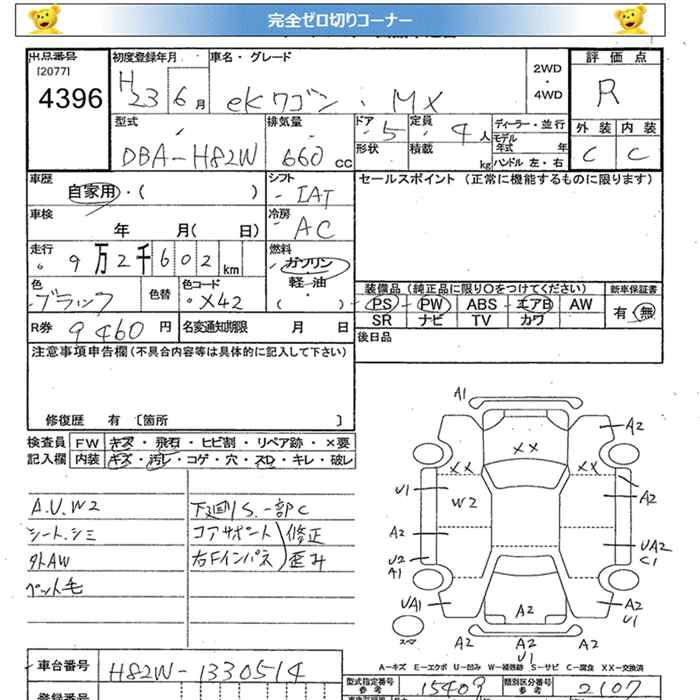 完全ゼロ切りコーナー
出品番号
[2077]
4396
初度登録年月
H23 6月
車名・グレード
ekワゴン . MX
2WD
・
4WD
評価点
R
外装 内装
C C
型式
DBA-H82W
排気量
660 CC
ドア
5
形状
定員
4 人
積載
kg
ディーラー・並行
モデル年式 年
ハンドル 左・右
車歴
自家用・( )
シフト
IAT
セールスポイント (正常に機能するものに限ります)
車検
年 月( 日)
冷房
AC
走行
9万2千602km
燃料
ガソリン
軽・油
・
( )
色
ブラック
色替
色コード
X42
装備品 (純正品に限り○をつけてください)
新車保証書
PS・PW・ABS・エアB・AW
SR ナビ TV カワ
有・無
R券 9460円
名変通知期限 月 日
後日品
注意事項申告欄(不具合内容等は具体的に記入して下さい)
修復歴 有 〔箇所 〕
検査員 FW キズ・飛石・ヒビ割・リペア跡・×要
記入欄 内装 キズ・汚レ・コゲ・穴・スレ・キレ・破レ
A.U.W2
シート.シミ
外AW
ペット毛
下廻りS.一部C
コアサポート 修正
右Fインパネ 歪み
A1
A2
XX
XX
XX
U1
W2
A2
A2
U2
A1
UA2
C1
UA1
A2
A2
U1
スペ
A2
A2
U1
A2
A-キズ E-エクボ U-凹み W-補修跡 S-サビ C-腐食 XX-交換済
車台番号 H82W-1330514
型式指定番号
参考
15409
類別区分番号
参考
2107
登録番号